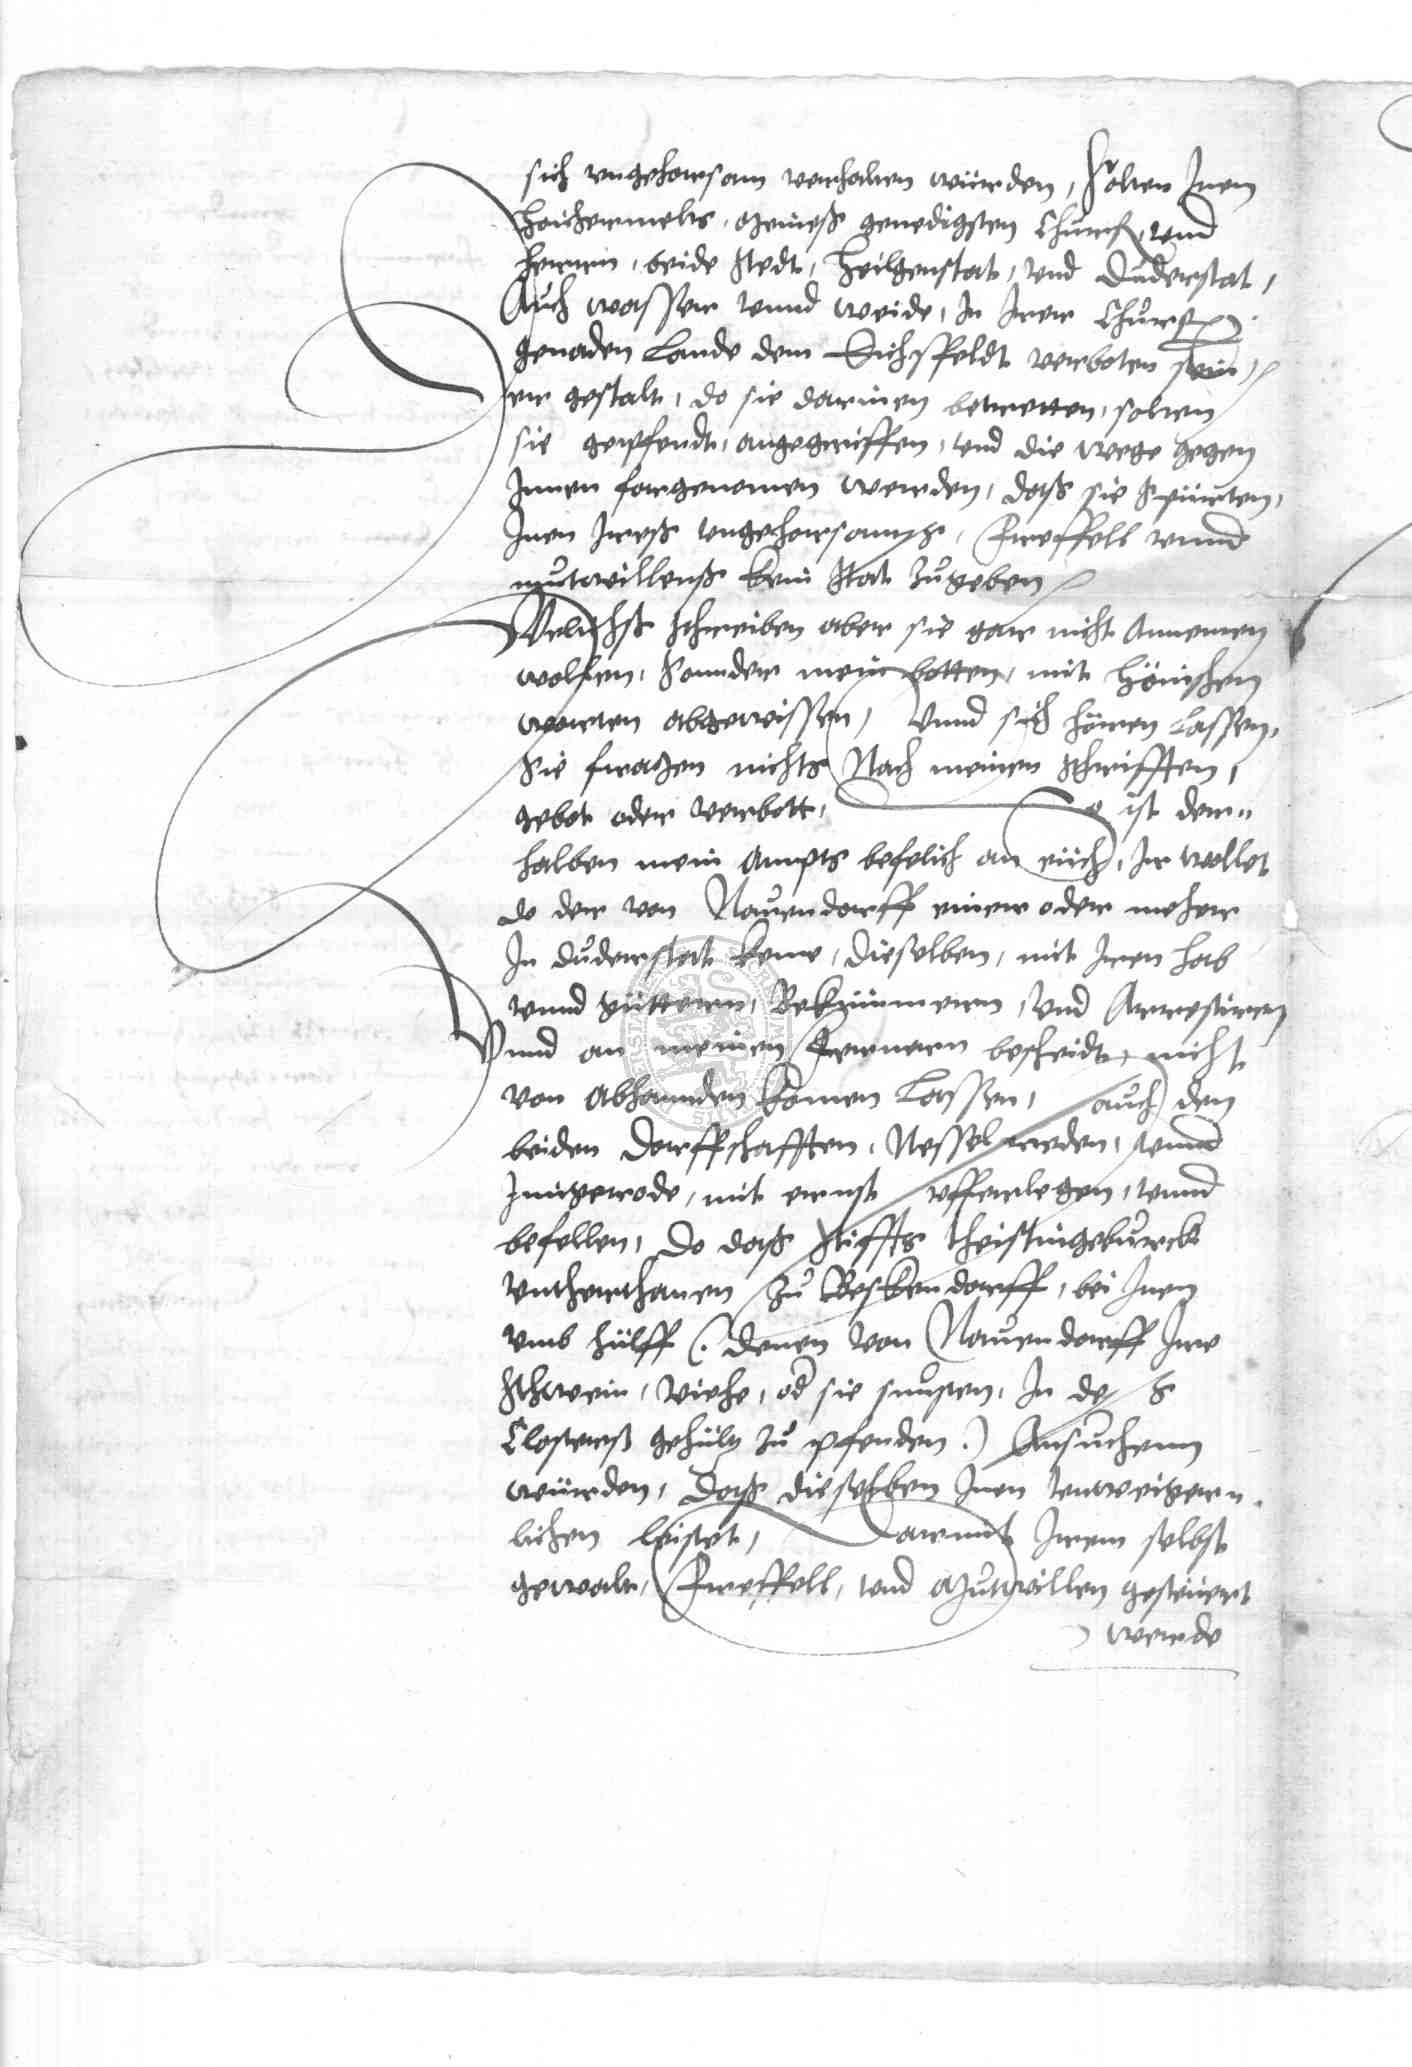 sich ungehorsam verhalten würden, Solten Inen
hochermelts, meineß genedigsten Churf. und
herrn, beide Stedt, Heilgenstat, und Duderstat,
Auch wasser unnd weide, In Irer Churf.
genaden Lande dem Eichsfeldt verboten sein,
der gestalt, do sie darinen betretten, solten
sie gepfendt, angegriffen, und die wege gegen
Innen forgenomen werden, daß sie spürten,
Inen Ireß ungehorsamß, Freffell unnd
mutwillenß kein stat zugeben
Welichß schreiben aber sie gar nicht Annemen
wolten, Sonnder mein botten, mit hönischen
worten abgewissen, Unnd sich hören Lassen,
Sie fragen nichts Nach meinen schrifften,
gebot oder verbott, So ist der"
halben mein Ampts befelich an euch, Ir wollet
do der von Nauendorff einer oder meher
In duderstat keme, dieselben, mit Iren hab
unnd güttern, Bekümmern, Und Arrestiren
Unnd an meinen Fernern bescheidt, nicht
von abhannden komen Lassen, auch den
beiden dorffschafften, Nesselrieden, unnd
Imigerode, mit ernst ufferlegen, unnd
befellen, Do daß stiffts theistingeburck
untherthanen zu Beskendorff, bei Inen
umb hülff (. denen von Nauendorff Ire
schwein, viehe, od sie sunsten, In deß
Closterß gehültz zu pfenden .) Ansuchenn
würden, daß dieselben Inen unweigern
lichen leistet, Darmit Irem selbst
gewalt, Freffell, und Mutwillen gesteuert
werde